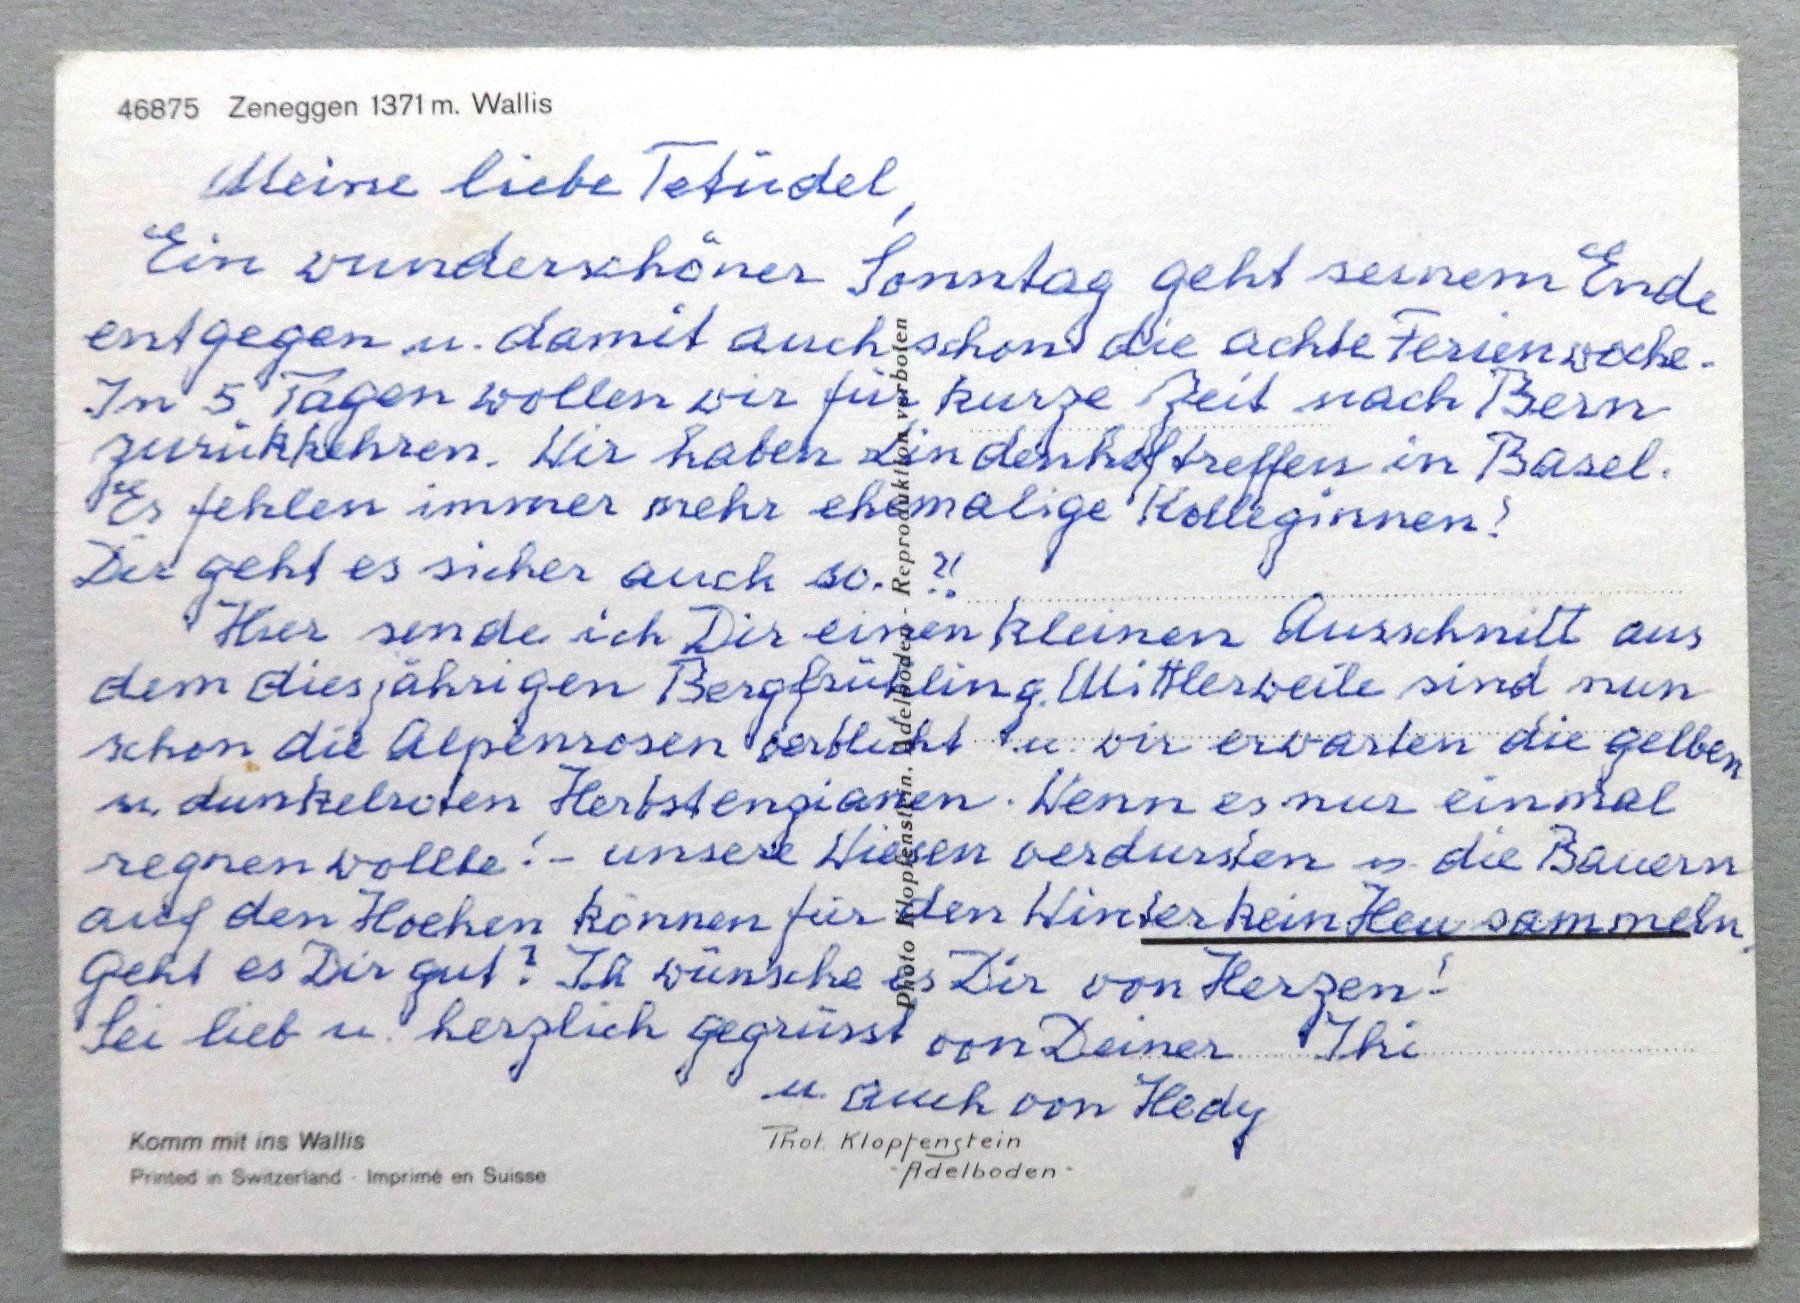 46875 Zeneggen 1371 m. Wallis
Meine liebe Tetüdel,
Ein wunderschöner Sonntag geht seinem Ende
entgegen u. damit auch schon die achte Ferienwoche.
In 5 Tagen wollen wir für kurze Zeit nach Bern
zurückkehren. Wir haben Lindenhoftreffen in Basel.
Es fehlen immer mehr ehemalige Kolleginnen!
Dir geht es sicher auch so. ?!
Hier sende ich Dir einen kleinen Ausschnitt aus
dem diesjährigen Bergfrühling. Mittlerweile sind nun
schon die Alpenrosen verblüht u. wir erwarten die gelben
u. dunkelroten Herbstenzianen. Wenn es nur einmal
regnen wollte! – unsere Wiesen verdursten u. die Bauern
auf den Hoehen können für den Winter kein Heu sammeln.
Geht es Dir gut? Ich wünsche es Dir von Herzen!
Sei lieb u. herzlich gegrüsst von Deiner Ihi
u. auch von Hedy
Photo Klopfenstein, Adelboden - Reproduktion verboten
Komm mit ins Wallis
Printed in Switzerland - Imprimé en Suisse
Phot. Klopfenstein
- Adelboden -